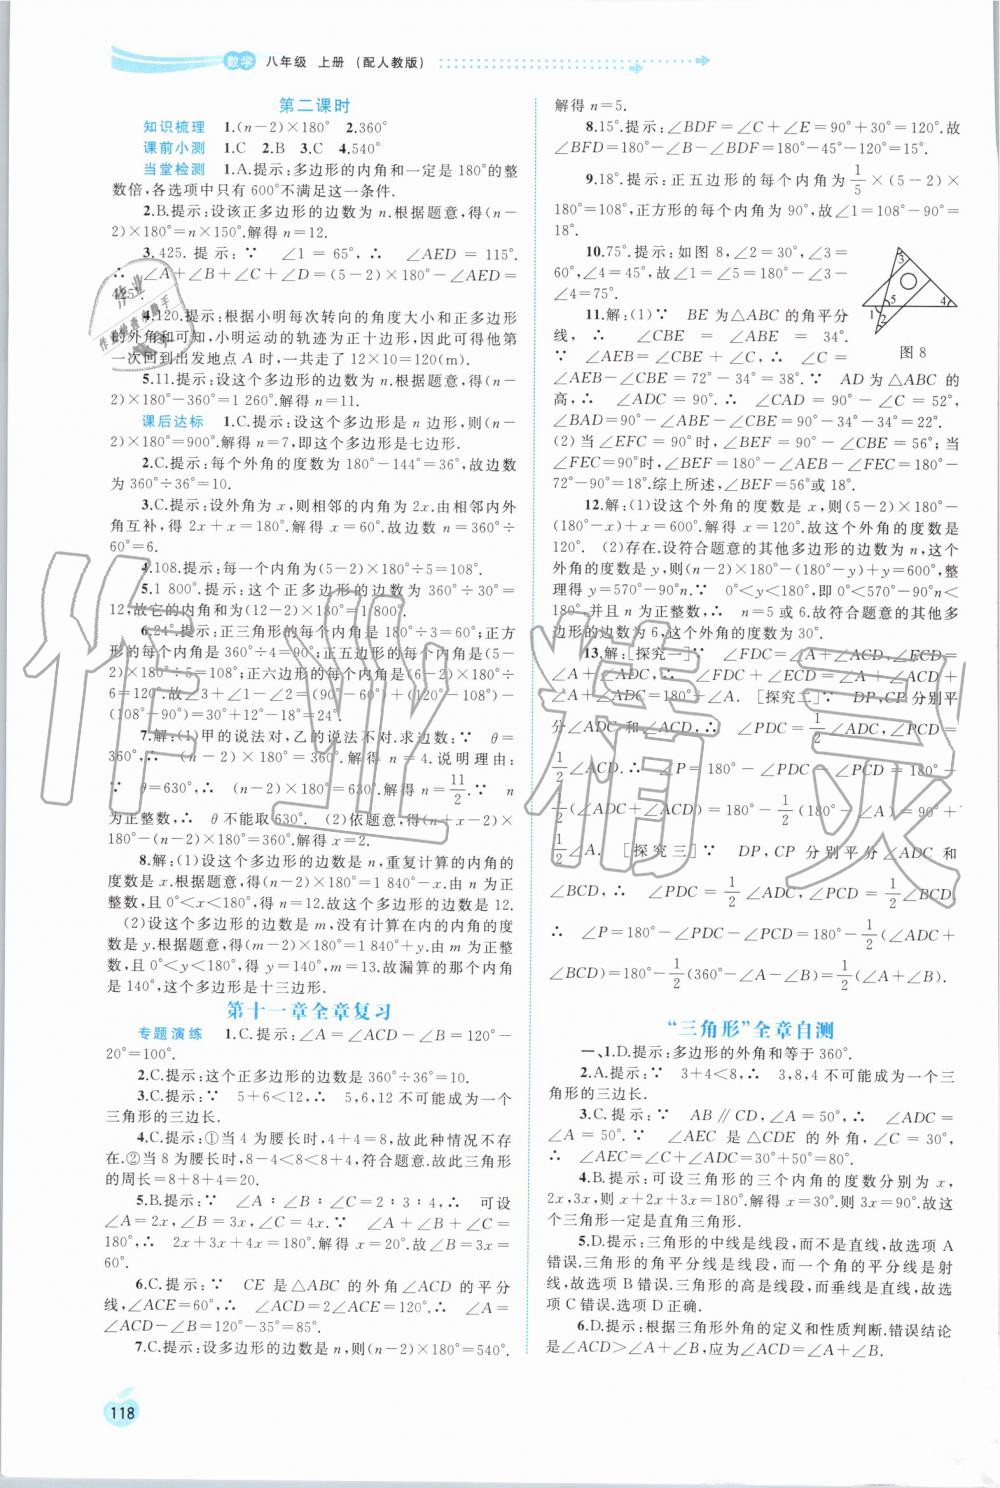 数学 八年级 上册 (配人教版)
第二课时
知识梳理 1.(n-2)×180° 2.360°
课前小测 1.C 2.B 3.C 4.540°
当堂检测 1.A.提示:多边形的内角和一定是180°的整
数倍,各选项中只有600°不满足这一条件.
2.B.提示:设该正多边形的边数为n.根据题意,得(n-
2)×180°=n×150°.解得n=12.
3.425.提示:∵ ∠1=65°,∴ ∠AED=115°.
∴ ∠A+∠B+∠C+∠D=(5-2)×180°-∠AED=
425°.
4.120.提示:根据小明每次转向的角度大小和正多边形
的外角和可知,小明运动的轨迹为正十边形,因此可得他第
一次回到出发地点A时,一共走了12×10=120(m).
5.11.提示:设这个多边形的边数为n.根据题意,得(n-
2)×180°-360°=1 260°.解得n=11.
课后达标 1.C.提示:设这个多边形是n边形,则(n-
2)×180°=900°.解得n=7,即这个多边形是七边形.
2.C.提示:每个外角的度数为180°-144°=36°,故边数
为360°÷36°=10.
3.C.提示:设外角为x,则相邻的内角为2x.由相邻内外
角互补,得2x+x=180°.解得x=60°.故边数n=360°÷
60°=6.
4.108.提示:每一个内角为(5-2)×180°÷5=108°.
5.1 800°.提示:这个正多边形的边数为360°÷30°=
12,故它的内角和为(12-2)×180°=1 800°.
6.24°.提示:正三角形的每个内角是180°÷3=60°;正方
形的每个内角是360°÷4=90°;正五边形的每个内角是(5-
2)×180°÷5=108°;正六边形的每个内角是(6-2)×180°÷
6=120°.故∠3+∠1-∠2=(90°-60°)+(120°-108°)-
(108°-90°)=30°+12°-18°=24°.
7.解:(1)甲的说法对,乙的说法不对.求边数:∵ θ=
360°,∴ (n-2)×180°=360°.解得n=4.说明理由:
∵ θ=630°,∴ (n-2)×180°=630°.解得n=11/2.∵ n
为正整数,∴ θ不能取630°. (2)依题意,得(n+x-2)×
180°-(n-2)×180°=360°.解得x=2.
8.解:(1)设这个多边形的边数是n,重复计算的内角的
度数是x.根据题意,得(n-2)×180°=1 840°-x.由n为正整
数,且0°<x<180°,得n=12.故这个多边形的边数是12.
(2)设这个多边形的边数是m,没有计算在内的内角的度
数是y.根据题意,得(m-2)×180°=1 840°+y.由m为正整
数,且0°<y<180°,得y=140°,m=13.故漏算的那个内角
是140°,这个多边形是十三边形.
第十一章全章复习
专题演练 1.C.提示:∠A=∠ACD-∠B=120°-
20°=100°.
2.C.提示:这个正多边形的边数是360°÷36°=10.
3.C.提示:∵ 5+6<12,∴ 5,6,12不可能成为一个
三角形的三边长.
4.C.提示:①当4为腰长时,4+4=8,故此种情况不存
在;②当8为腰长时,8-4<8<8+4,符合题意.故此三角形
的周长=8+8+4=20.
5.B.提示:∵ ∠A∶∠B∶∠C=2∶3∶4,∴ 可设
∠A=2x,∠B=3x,∠C=4x.∵ ∠A+∠B+∠C=
180°,∴ 2x+3x+4x=180°.解得x=20°.故∠B=3x=
60°.
6.C.提示:∵ CE是△ABC的外角∠ACD的平分
线,∠ACE=60°,∴ ∠ACD=2∠ACE=120°.∴ ∠A=
∠ACD-∠B=120°-35°=85°.
7.C.提示:设多边形的边数是n,则(n-2)×180°=540°.
解得n=5.
8.15°.提示:∠BDF=∠C+∠E=90°+30°=120°.故
∠BFD=180°-∠B-∠BDF=180°-45°-120°=15°.
9.18°.提示:正五边形的每个内角为1/5×(5-2)×
180°=108°,正方形的每个内角为90°,故∠1=108°-90°=
18°.
10.75°.提示:如图8,∠2=30°,∠3=
60°,∠4=45°,故∠1=∠2=30°,∠5=
∠4+∠1=75°.
11.解:(1)∵ BE为△ABC的角平分
线,∴ ∠CBE=∠ABE=34°.
∵ ∠AEB=∠CBE+∠C,∴ ∠C=
∠AEB-∠CBE=72°-34°=38°.∵ AD为△ABC的
高,∴ ∠ADC=90°.∴ ∠CAD=90°-∠C=52°,
∠BAD=90°-∠ABE-∠CBE=90°-34°-34°=22°.
(2)当∠EFC=90°时,∠BEF=90°-∠CBE=56°;当
∠FEC=90°时,∠BEF=180°-∠AEB-∠FEC=180°-
72°-90°=18°.综上所述,∠BEF=56°或18°.
图8
12.解:(1)设这个外角的度数是x,则(5-2)×180°-
(180°-x)+x=600°.解得x=120°.故这个外角的度数是
120°. (2)存在.设符合题意的其他多边形的边数为n,这个
外角的度数是y,则(n-2)×180°-(180°-y)+y=600°.整理
得y=570°-90°n.∵ 0°<y<180°,即0°<570°-90°n<
180°,并且n为正整数,∴ n=5或6.故符合题意的其他多
边形的边数为6,这个外角的度数为30°.
13.解:[探究一]∵ ∠FDC=∠A+∠ACD,∠ECD=
∠A+∠ADC,∴ ∠FDC+∠ECD=∠A+∠ACD+
∠A+∠ADC=180°+∠A. [探究二]∵ DP,CP分别平
分∠ADC和∠ACD,∴ ∠PDC=1/2∠ADC,∠PCD=
1/2∠ACD.∴ ∠P=180°-∠PDC-∠PCD=180°-
1/2(∠ADC+∠ACD)=180°-1/2(180°-∠A)=90°+
1/2∠A. [探究三]∵ DP,CP分别平分∠ADC和
∠BCD,∴ ∠PDC=1/2∠ADC,∠PCD=1/2∠BCD.
∴ ∠P=180°-∠PDC-∠PCD=180°-1/2(∠ADC+
∠BCD)=180°-1/2(360°-∠A-∠B)=1/2(∠A+∠B).
“三角形”全章自测
一、1.D.提示:多边形的外角和等于360°.
2.A.提示:∵ 3+4<8,∴ 3,8,4不可能成为一个三
角形的三边长.
3.C.提示:∵ AB∥CD,∠A=50°,∴ ∠ADC=
∠A=50°.∵ ∠AEC是△CDE的外角,∠C=30°,
∴ ∠AEC=∠C+∠ADC=30°+50°=80°.
4.B.提示:可设三角形的三个内角的度数分别为x,
2x,3x,则x+2x+3x=180°.解得x=30°.则3x=90°.故这
个三角形一定是直角三角形.
5.D.提示:三角形的中线是线段,而不是直线,故选项A
错误.三角形的角平分线是线段,而三角形的角的平分线是射
线,故选项B错误.三角形的高是线段,而垂线是直线,故选
项C错误.选项D正确.
6.D.提示:根据三角形外角的定义和性质判断.错误结论
是∠ACD>∠A+∠B,应为∠ACD=∠A+∠B.
118
作业精灵